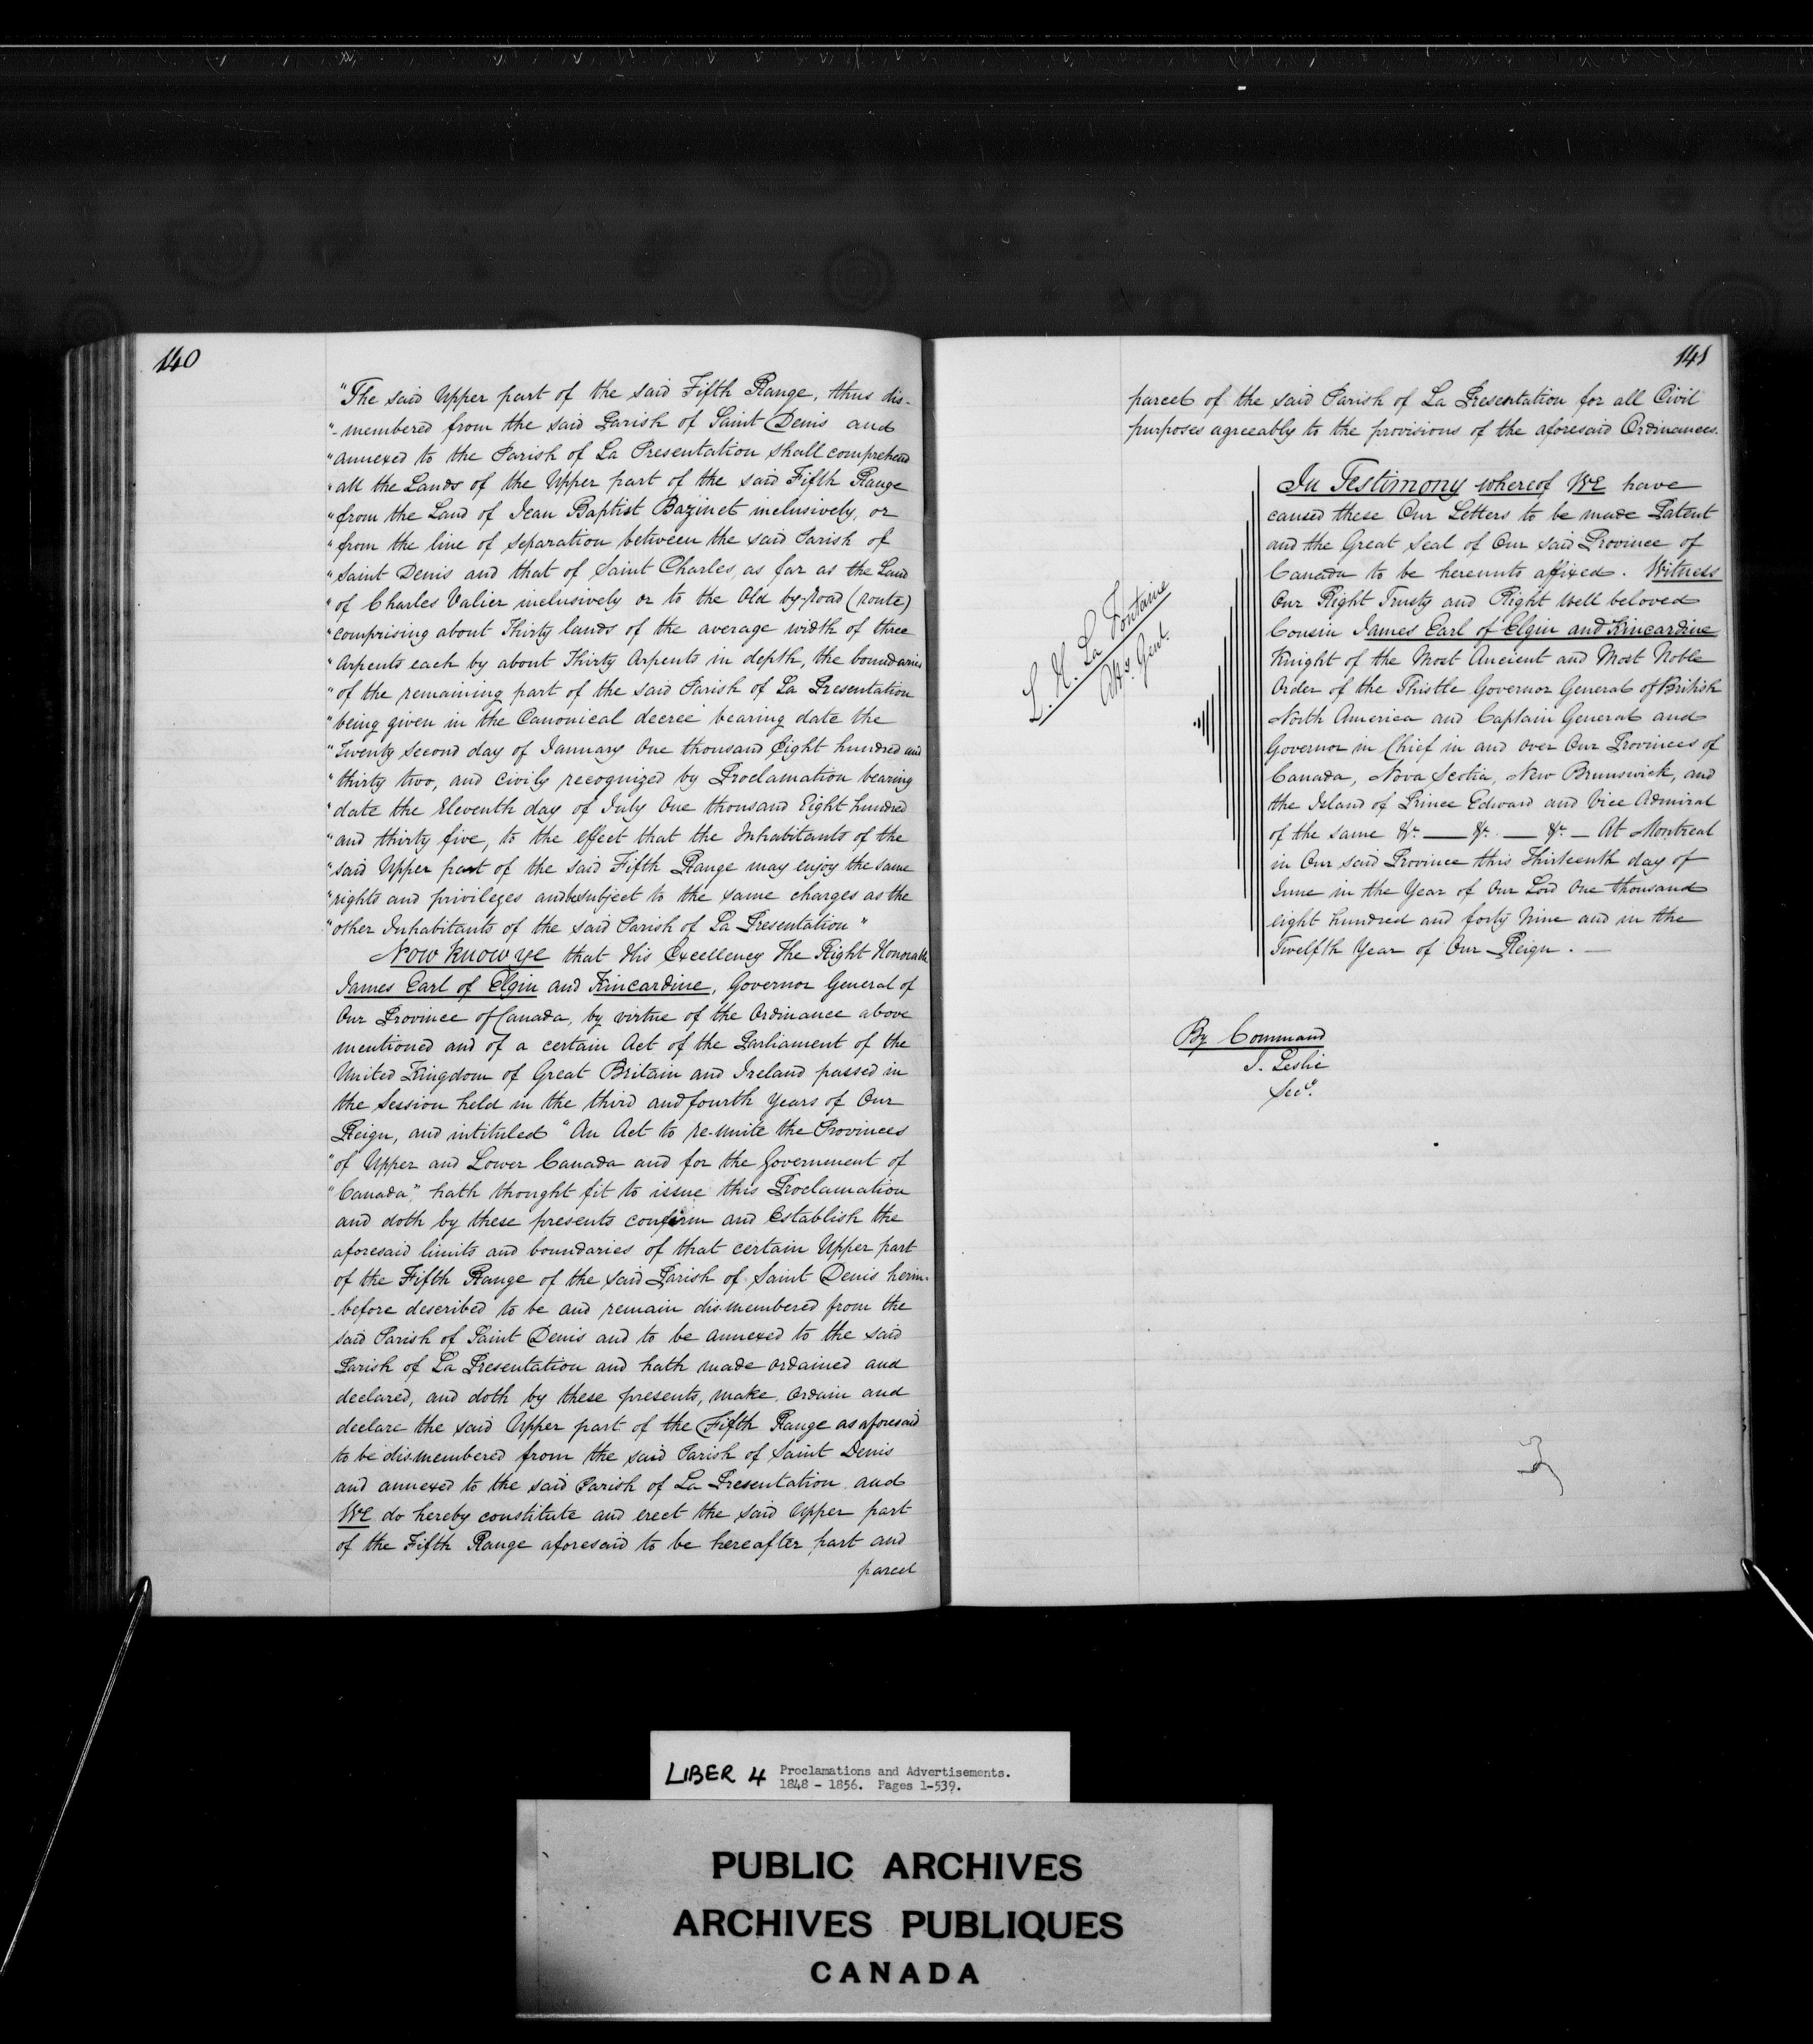 140
"The said Upper part of the said Fifth Range, thus dis-
"-membered from the said Parish of Saint Denis and
"annexed to the Parish of La Presentation shall comprehend
"all the Lands of the Upper part of the said Fifth Range
"from the Land of Jean Baptist Bazinet inclusively, or
"from the line of separation between the said Parish of
"Saint Denis and that of Saint Charles, as far as the Land
"of Charles Valier inclusively or to the Old by-Road (route)
"comprising about Thirty lands of the average width of three
"Arpents each by about Thirty Arpents in depth, the boundaries
"of the remaining part of the said Parish of La Presentation
"being given in the Canonical decree bearing date the
"Twenty second day of January One thousand Eight hundred and
"thirty two, and civily recognized by Proclamation bearing
"date the Eleventh day of July One thousand Eight hundred
"and thirty five, to the effect that the Inhabitants of the
"said Upper part of the said Fifth Range may enjoy the same
"rights and privileges and be subject to the same charges as the
"other Inhabitants of the said Parish of La Presentation"
Now Know ye that His Excellency The Right Honorable
James Earl of Elgin and Kincardine, Governor General of
Our Province of Canada, by virtue of the Ordinance above
mentioned and of a certain Act of the Parliament of the
United Kingdom of Great Britain and Ireland passed in
the Session held in the third and fourth Years of Our
Reign, and intituled "An Act to re-unite the Provinces
"of Upper and Lower Canada and for the Government of
"Canada", hath thought fit to issue this Proclamation
and doth by these presents confirm and Establish the
aforesaid limits and boundaries of that certain Upper part
of the Fifth Range of the said Parish of Saint Denis herin-
-before described to be and remain dis-membered from the
said Parish of Saint Denis and to be annexed to the said
Parish of La Presentation and hath made ordained and
declared, and doth by these presents, make, Ordain and
declare the said Upper part of the Fifth Range as aforesaid
to be dismembered from the said Parish of Saint Denis
and annexed to the said Parish of La Presentation and
WE do hereby constitute and erect the said Upper part
of the Fifth Range aforesaid to be hereafter part and
parcel
141
parcel of the said Parish of La Presentation for all Civil
purposes agreeably to the provisions of the aforesaid Ordinances.
L. H. La Fontaine
Atty. Genl.
In Testimony whereof WE have
caused these Our Letters to be made Patent
and the Great Seal of Our said Province of
Canada to be hereunto affixed. Witness
Our Right Trusty and Right Well beloved
Cousin James Earl of Elgin and Kincardine
Knight of the Most Ancient and Most Noble
Order of the Thistle Governor General of British
North America and Captain General and
Governor in Chief in and over Our Provinces of
Canada, Nova Scotia, New Brunswick, and
the Island of Prince Edward and Vice Admiral
of the same &c. — &c. — &c. — At Montreal
in Our said Province this Thirteenth day of
June in the Year of Our Lord One thousand
eight hundred and forty Nine and in the
Twelfth Year of Our Reign. —
By Command
J. Leslie
Secy.
LIBER 4 Proclamations and Advertisements.
1848 - 1856. Pages 1-539.
PUBLIC ARCHIVES
ARCHIVES PUBLIQUES
CANADA